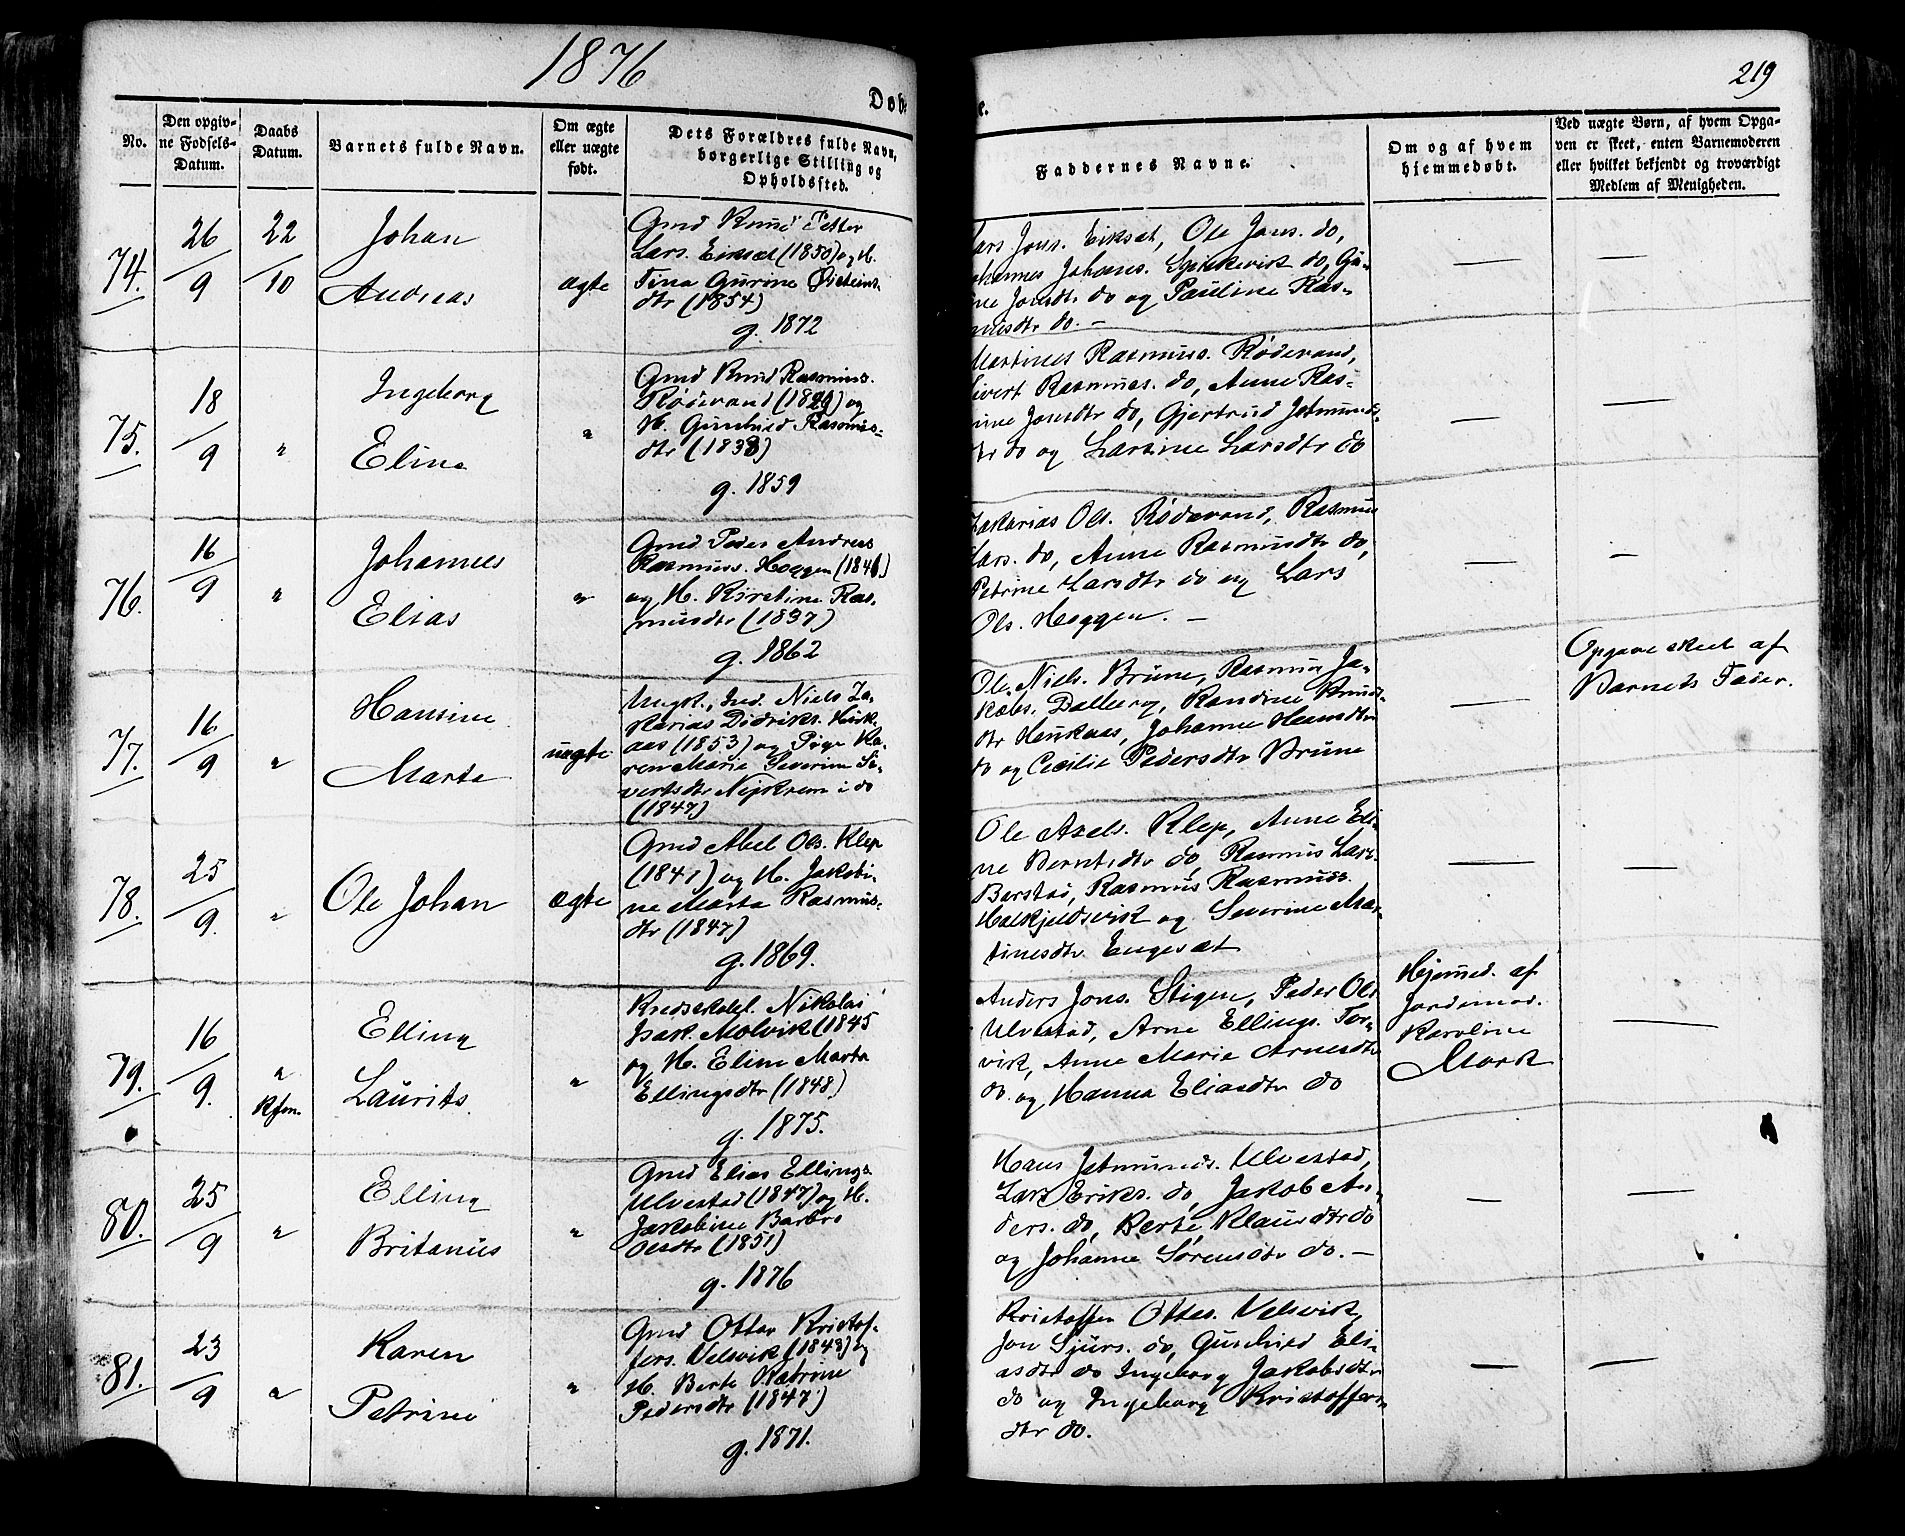 1876
219
Døbe
e.
No.
Den opgiv-
ne Fødsels-
Datum.
Daabs
Datum.
Barnets fulde Navn.
Om ægte
eller uægte
født.
Dets Forældres fulde Navn,
borgerlige Stilling og
Opholdssted.
Faddernes Navne.
Om og af hvem
hjemmedøbt.
Ved uægte Børn, af hvem Opga-
ven er skeet, enten Barnemoderen
eller hvilket bekjendt og troværdigt
Medlem af Menigheden.
74.
26/9
22/10
Johan
Andreas
ægte
Gmd Knud Petter
Lars. Eiksæt (1850) og H.
Tina Gurine Øisteins-
dtr (1854)
g. 1872
Lars Jons. Eiksæt, Ole Jons. do,
Johannes Johans. Spilkevik do, Gu-
ine Jonsdtr do og Pauline Ras-
musdtr do. —
—
—
75.
18/9
"
Ingeborg
Eline
"
Gmd Knud Rasmus.
Rødevand (1829) og
H. Gunhild Rasmus-
dtr (1838)
g. 1859
Martines Rasmus. Rødevand,
Sivert Rasmus. do, Anne Ras-
ine Jonsdtr do, Gjertrud Jetmunds-
dtr do og Larsine Larsdtr do
—
—
76.
16/9
"
Johannes
Elias
"
Gmd Peder Andreas
Rasmuss. Hoggen (1846)
og H. Kirstine Ras-
musdtr (1837)
g. 1862
Zakarias Ols. Rødevand, Rasmus
Lars. do, Anne Rasmusdtr do,
Petrine Larsdtr do og Lars
Ols. Hoggen. —
—
—
77.
16/9
"
Hansine
Marte
uægte
Ungk., Ind. Niels Za-
karias Didriks.
(1853) og Pige Ka-
ren Marie Severine Si-
vertsdtr i do
(1847)
Ole Niels. Brune, Rasmus Ja-
kobs. Dalberg, Randine Knuds-
dtr Johanne Hansdtr
do og Cecilie Pedersdtr Brune
—
Opgave skeet af
Barnets Fader.
78.
25/9.
"
Ole Johan
ægte
Gmd Abel Ols. Klep
(1841) og H. Jakobi-
ne Marta Rasmus-
dtr (1847)
g. 1869.
Ole Axels. Klep, Anne Eli-
ne Berntsdtr do, Rasmus Lars.
Barstad, Rasmus Rasmuss.
Halkjeldsvik og Severine Mar-
tinusdtr Engesæt
—
—
79.
16/9.
"
Kfm.
Elling
Laurits.
"
Kredsskolel. Nikolai
Isak. Molvik (1845
og H. Eline Marta
Ellingsdtr (1848)
g. 1875.
Anders Jons. Stigen, Peder Ols
Ulvestad, Arne Ellings. Tor-
vik, Anne Marie Arnesdtr
do. og Hanna Eliasdtr do
Hjemmed. af
Jordemod.
Karoline
Mork
—
80.
25/9
"
Elling
Britanus
"
Gmd Elias Ellings
Ulvestad (1847) og H.
Jakobine Barbro
Olsdtr (1851)
g. 1876
Hans Jetmunds. Ulvestad,
Lars Eriks. do, Jakob An-
ders. do, Berte Klausdtr do
og Johanne Sørensdtr do. —
—
—
81.
23/9
"
Karen
Petrine
"
Gmd Ottar Kristof-
fers. Velsvik (1843) og
H. Berte Katrine
Pedersdtr (1847)
g. 1871.
Kristoffer Ottes. Velsvik,
Jon Sjurs. do, Gunhild Eli-
asdtr do Ingeborg Jakobsdtr
do og Ingeborg Kristoffers-
dtr do.
—
—